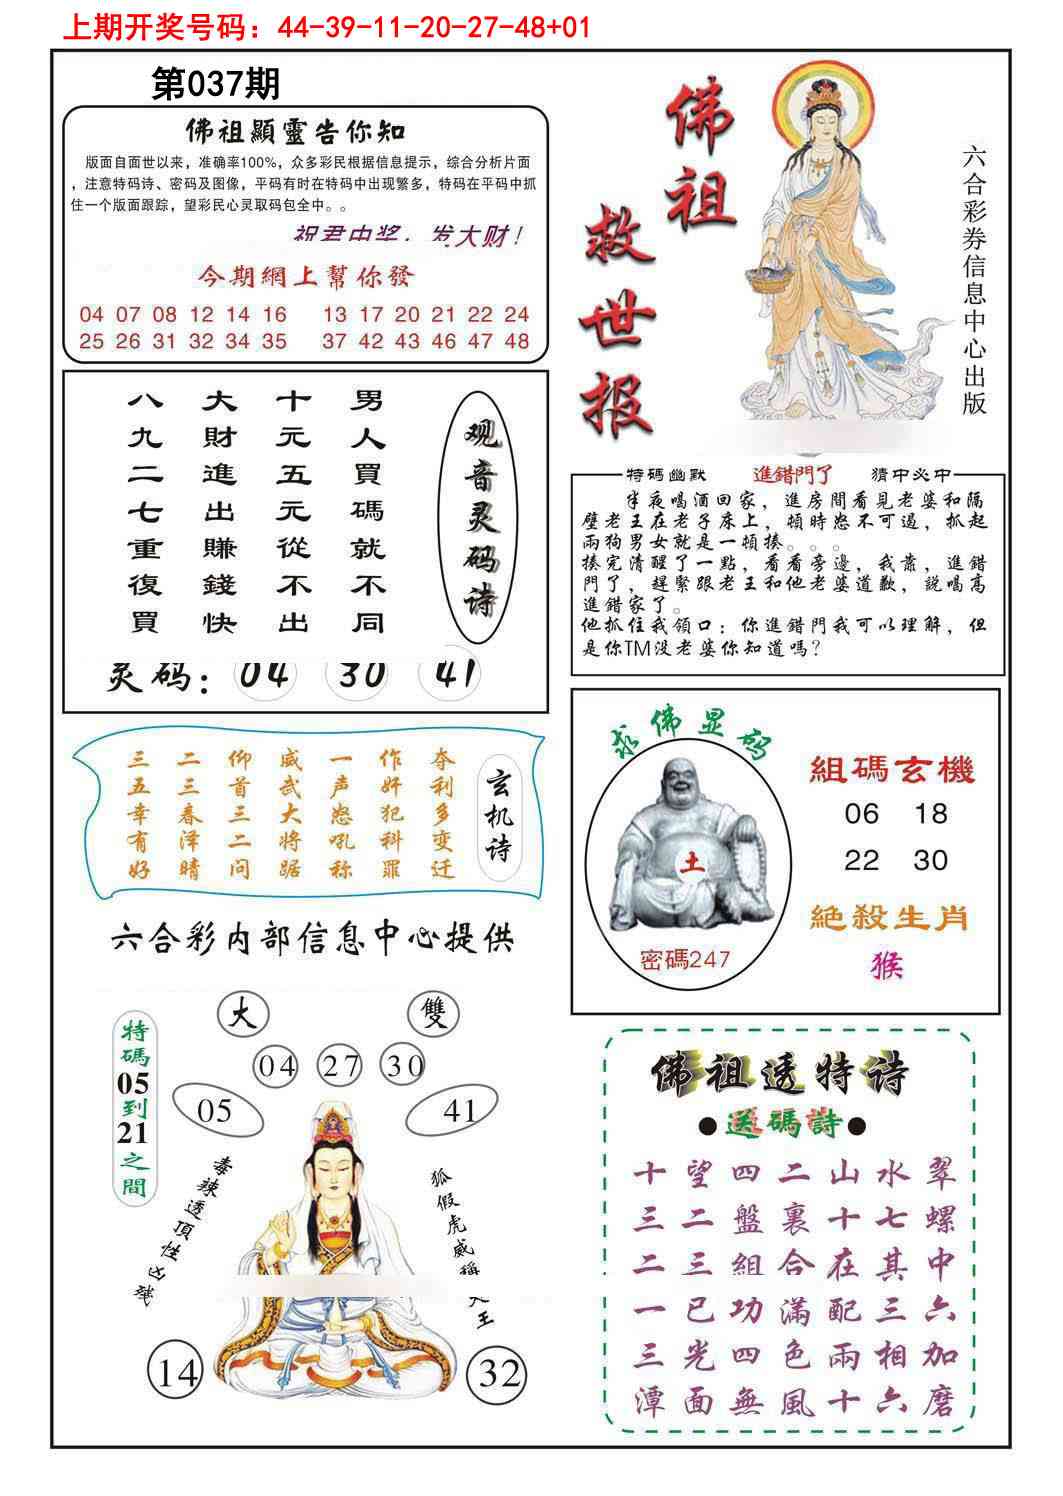 上期开奖号码：44-39-11-20-27-48+01
第037期
佛祖顯靈告你知
版面自面世以来，准确率100%，众多彩民根据信息提示，综合分析片面
，注意特码诗、密码及图像，平码有时在特码中出现繁多，特码在平码中抓
住一个版面跟踪，望彩民心灵取码包全中。。
祝君中奖，发大财！
今期網上幫你發
04 07 08 12 14 16 13 17 20 21 22 24
25 26 31 32 34 35 37 42 43 46 47 48
佛祖
救世报
六合彩券信息中心出版
观音灵码诗
男人買碼就不同
十元五元從不出
大財進出賺錢快
八九二七重復買
灵码：04 30 41
特碼幽默 進錯門了 猜中必中
半夜喝酒回家，進房間看見老婆和隔
壁老王在老子床上，頓時怒不可遏，抓起
兩狗男女就是一頓揍。。。
揍完清醒了一點，看看旁邊，我靠，進錯
門了，趕緊跟老王和他老婆道歉，説喝高
進錯家了。
他抓住我領口：你進錯門我可以理解，但
是你TM没老婆你知道嗎？
玄机诗
夺利多变迁
作奸犯科罪
一声怒吼称
威武大将踞
仰首三二问
二三春泽晴
三五幸有好
求佛显码
土
密碼247
組碼玄機
06 18
22 30
絶殺生肖
猴
六合彩内部信息中心提供
特碼05到21之間
大 雙
04 27 30
05 41
毒辣透頂性凶残
狐假虎威稱大王
14 32
佛祖透特诗
●送碼詩●
十望四二山水翠
三二盤裏十七螺
二三組合在其中
一已功滿配三六
三光四色兩相加
潭面無風十六磨